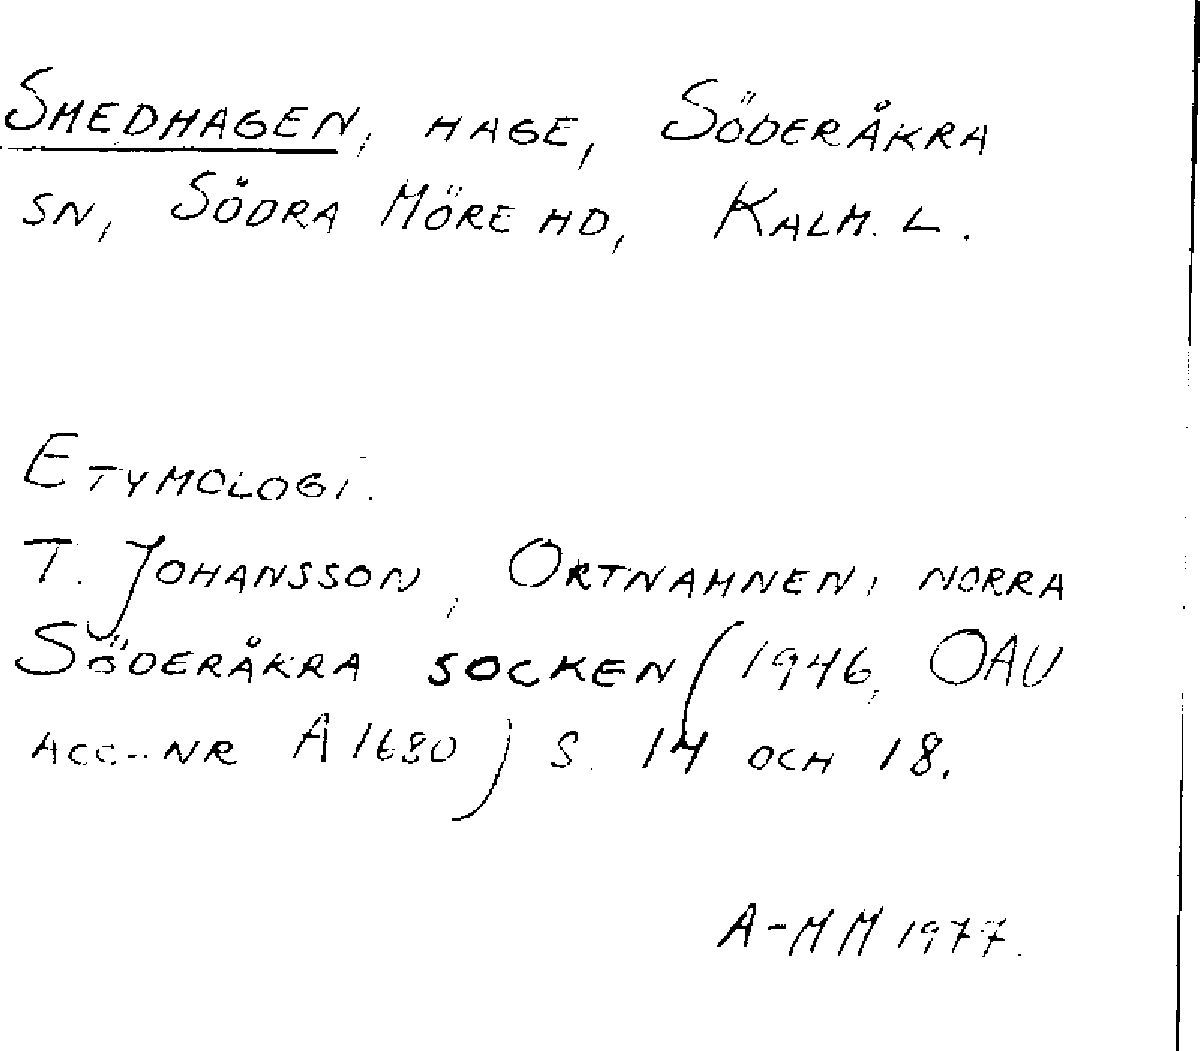 SMEDHAGEN, HAGE, SÖDERÅKRA
SN, SÖDRA MÖRE HD, KALM. L.
ETYMOLOGI.
T. JOHANSSON, ORTNAMNEN I NORRA
SÖDERÅKRA SOCKEN (1946, OAU
ACC.-NR A 1680) S. 14 OCH 18.
A-MM 1977.